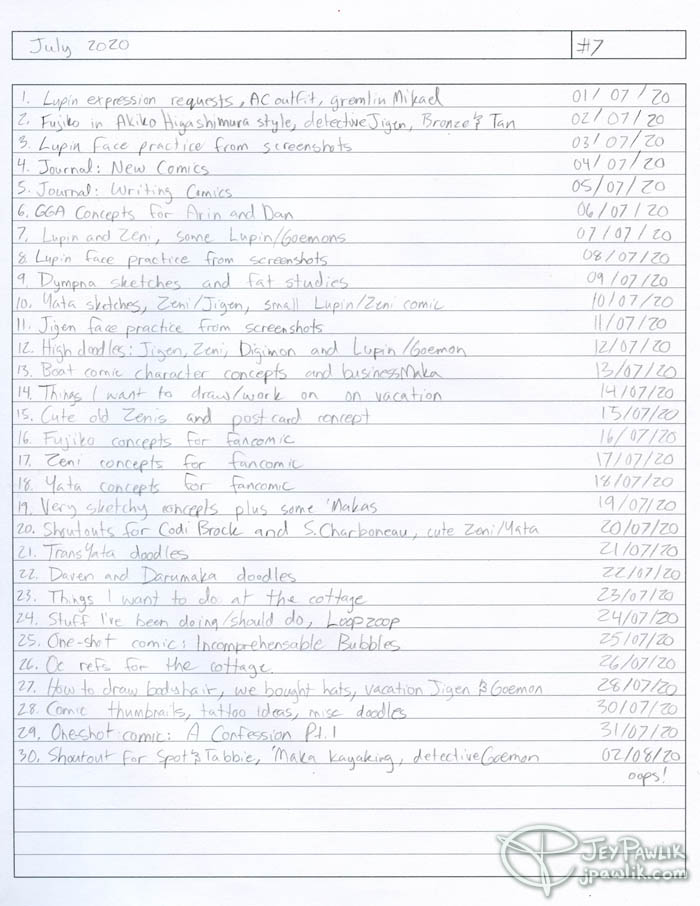 July 2020 #7
1. Lupin expression requests, AC outfit, gremlin Mikael 01/07/20
2. Fujiko in Akiko Higashimura style, detective Jigen, Bronze & Tan 02/07/20
3. Lupin face practice from screenshots 03/07/20
4. Journal: New Comics 04/07/20
5. Journal: Writing Comics 05/07/20
6. GGA Concepts for Arin and Dan 06/07/20
7. Lupin and Zeni, some Lupin/Goemons 07/07/20
8. Lupin face practice from screenshots 08/07/20
9. Dympna sketches and fat studies 09/07/20
10. Yata sketches, Zeni/Jigen, small Lupin/Zeni comic 10/07/20
11. Jigen face practice from screenshots 11/07/20
12. High doodles: Jigen, Zeni, Digimon and Lupin/Goemon 12/07/20
13. Boat comic character concepts and business Maka 13/07/20
14. Things I want to draw/work on on vacation 14/07/20
15. Cute old Zenis and postcard concept 15/07/20
16. Fujiko concepts for fancomic 16/07/20
17. Zeni concepts for fancomic 17/07/20
18. Yata concepts for fancomic 18/07/20
19. Very sketchy concepts plus some 'Makas 19/07/20
20. Shoutouts for Codi Brock and S. Charboneau, cute Zeni/Yata 20/07/20
21. Trans Yata doodles 21/07/20
22. Daven and Darumaka doodles 22/07/20
23. Things I want to do at the cottage 23/07/20
24. Stuff I've been doing/should do, Loopzoop 24/07/20
25. One-shot comic: Incomprehensable Bubbles 25/07/20
26. Oc refs for the cottage. 26/07/20
27. How to draw bodyhair, we bought hats, vacation Jigen & Goemon 28/07/20
28. Comic thumbnails, tattoo ideas, misc doodles 30/07/20
29. One-shot comic: A Confession Pt.1 31/07/20
30. Shoutout for Spot & Tabbie, 'Maka kayaking, detective Goemon 02/08/20
oops!
JEY PAWLIK
jpawlik.com